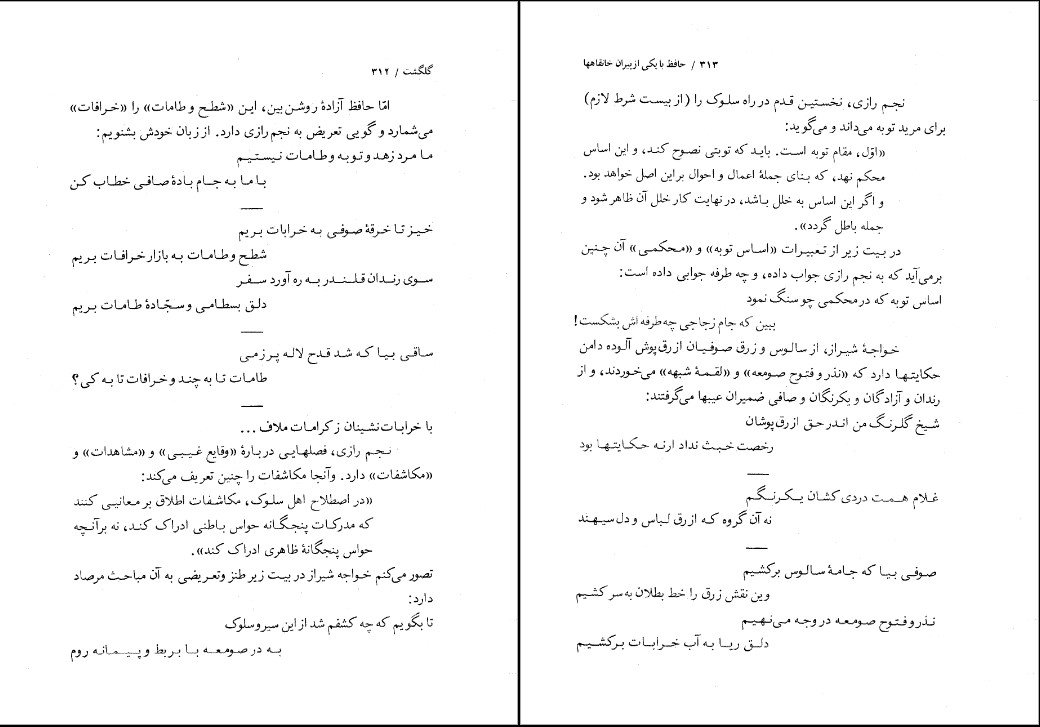 گلگشت / ۳۱۲
امّا حافظ آزادهٔ روشن‌بین، این «شطح و طامات» را «خرافات»
می‌شمارد و گویی تعریض به نجم رازی دارد. از زبان خودش بشنویم:
ما مرد زهد و توبه و طامات نیستیم
با ما به جام بادهٔ صافی خطاب کن
خیز تا خرقهٔ صوفی به خرابات بریم
شطح و طامات به بازار خرافات بریم
سوی رندان قلندر به ره آورد سفر
دلق بسطامی و سجّادهٔ طامات بریم
ساقی بیا که شد قدح لاله پر ز می
طامات تا به چند و خرافات تا به کی؟
با خرابات‌نشینان ز کرامات ملاف ...
نجم رازی، فصلهایی دربارهٔ «وقایع غیبی» و «مشاهدات» و
«مکاشفات» دارد. وآنجا مکاشفات را چنین تعریف می‌کند:
«در اصطلاح اهل سلوک، مکاشفات اطلاق بر معانیی کنند
که مدرکات پنجگانه حواس باطنی ادراک کند، نه برآنچه
حواس پنجگانهٔ ظاهری ادراک کند».
تصور می‌کنم خواجه شیراز در بیت زیر طنز وتعریضی به آن مباحث مرصاد
دارد:
تا بگویم که چه کشفم شد از این سیر و سلوک
به در صومعه با بربط و پیمانه روم
۳۱۳ / حافظ با یکی از پیران خانقاهها
نجم رازی، نخستین قدم در راه سلوک را (از بیست شرط لازم)
برای مرید توبه می‌داند و می‌گوید:
«اوّل، مقام توبه است. باید که توبتی نصوح کند، و این اساس
محکم نهد، که بنای جملهٔ اعمال و احوال بر این اصل خواهد بود.
و اگر این اساس به خلل باشد، در نهایت کار خلل آن ظاهر شود و
جمله باطل گردد».
در بیت زیر از تعبیرات «اساس توبه» و «محکمی» آن چنین
برمی‌آید که به نجم رازی جواب داده، و چه طرفه جوابی داده است:
اساس توبه که در محکمی چو سنگ نمود
ببین که جام زجاجی چه طرفه اش بشکست!
خواجهٔ شیراز، از سالوس و زرق صوفیان ازرق‌پوش آلوده دامن
حکایتها دارد که «نذر و فتوح صومعه» و «لقمهٔ شبهه» می‌خوردند، و از
رندان و آزادگان و یکرنگان و صافی ضمیران عیبها می‌گرفتند:
شیخ گلرنگ من اندر حق ازرق‌پوشان
رخصت خبث نداد ارنه حکایتها بود
غلام همت دردی کشان یکرنگم
نه آن گروه که ازرق لباس و دل سیهند
صوفی بیا که جامهٔ سالوس برکشیم
وین نقش زرق را خط بطلان به سر کشیم
نذر و فتوح صومعه در وجه می‌نهیم
دلق ریا به آب خرابات برکشیم